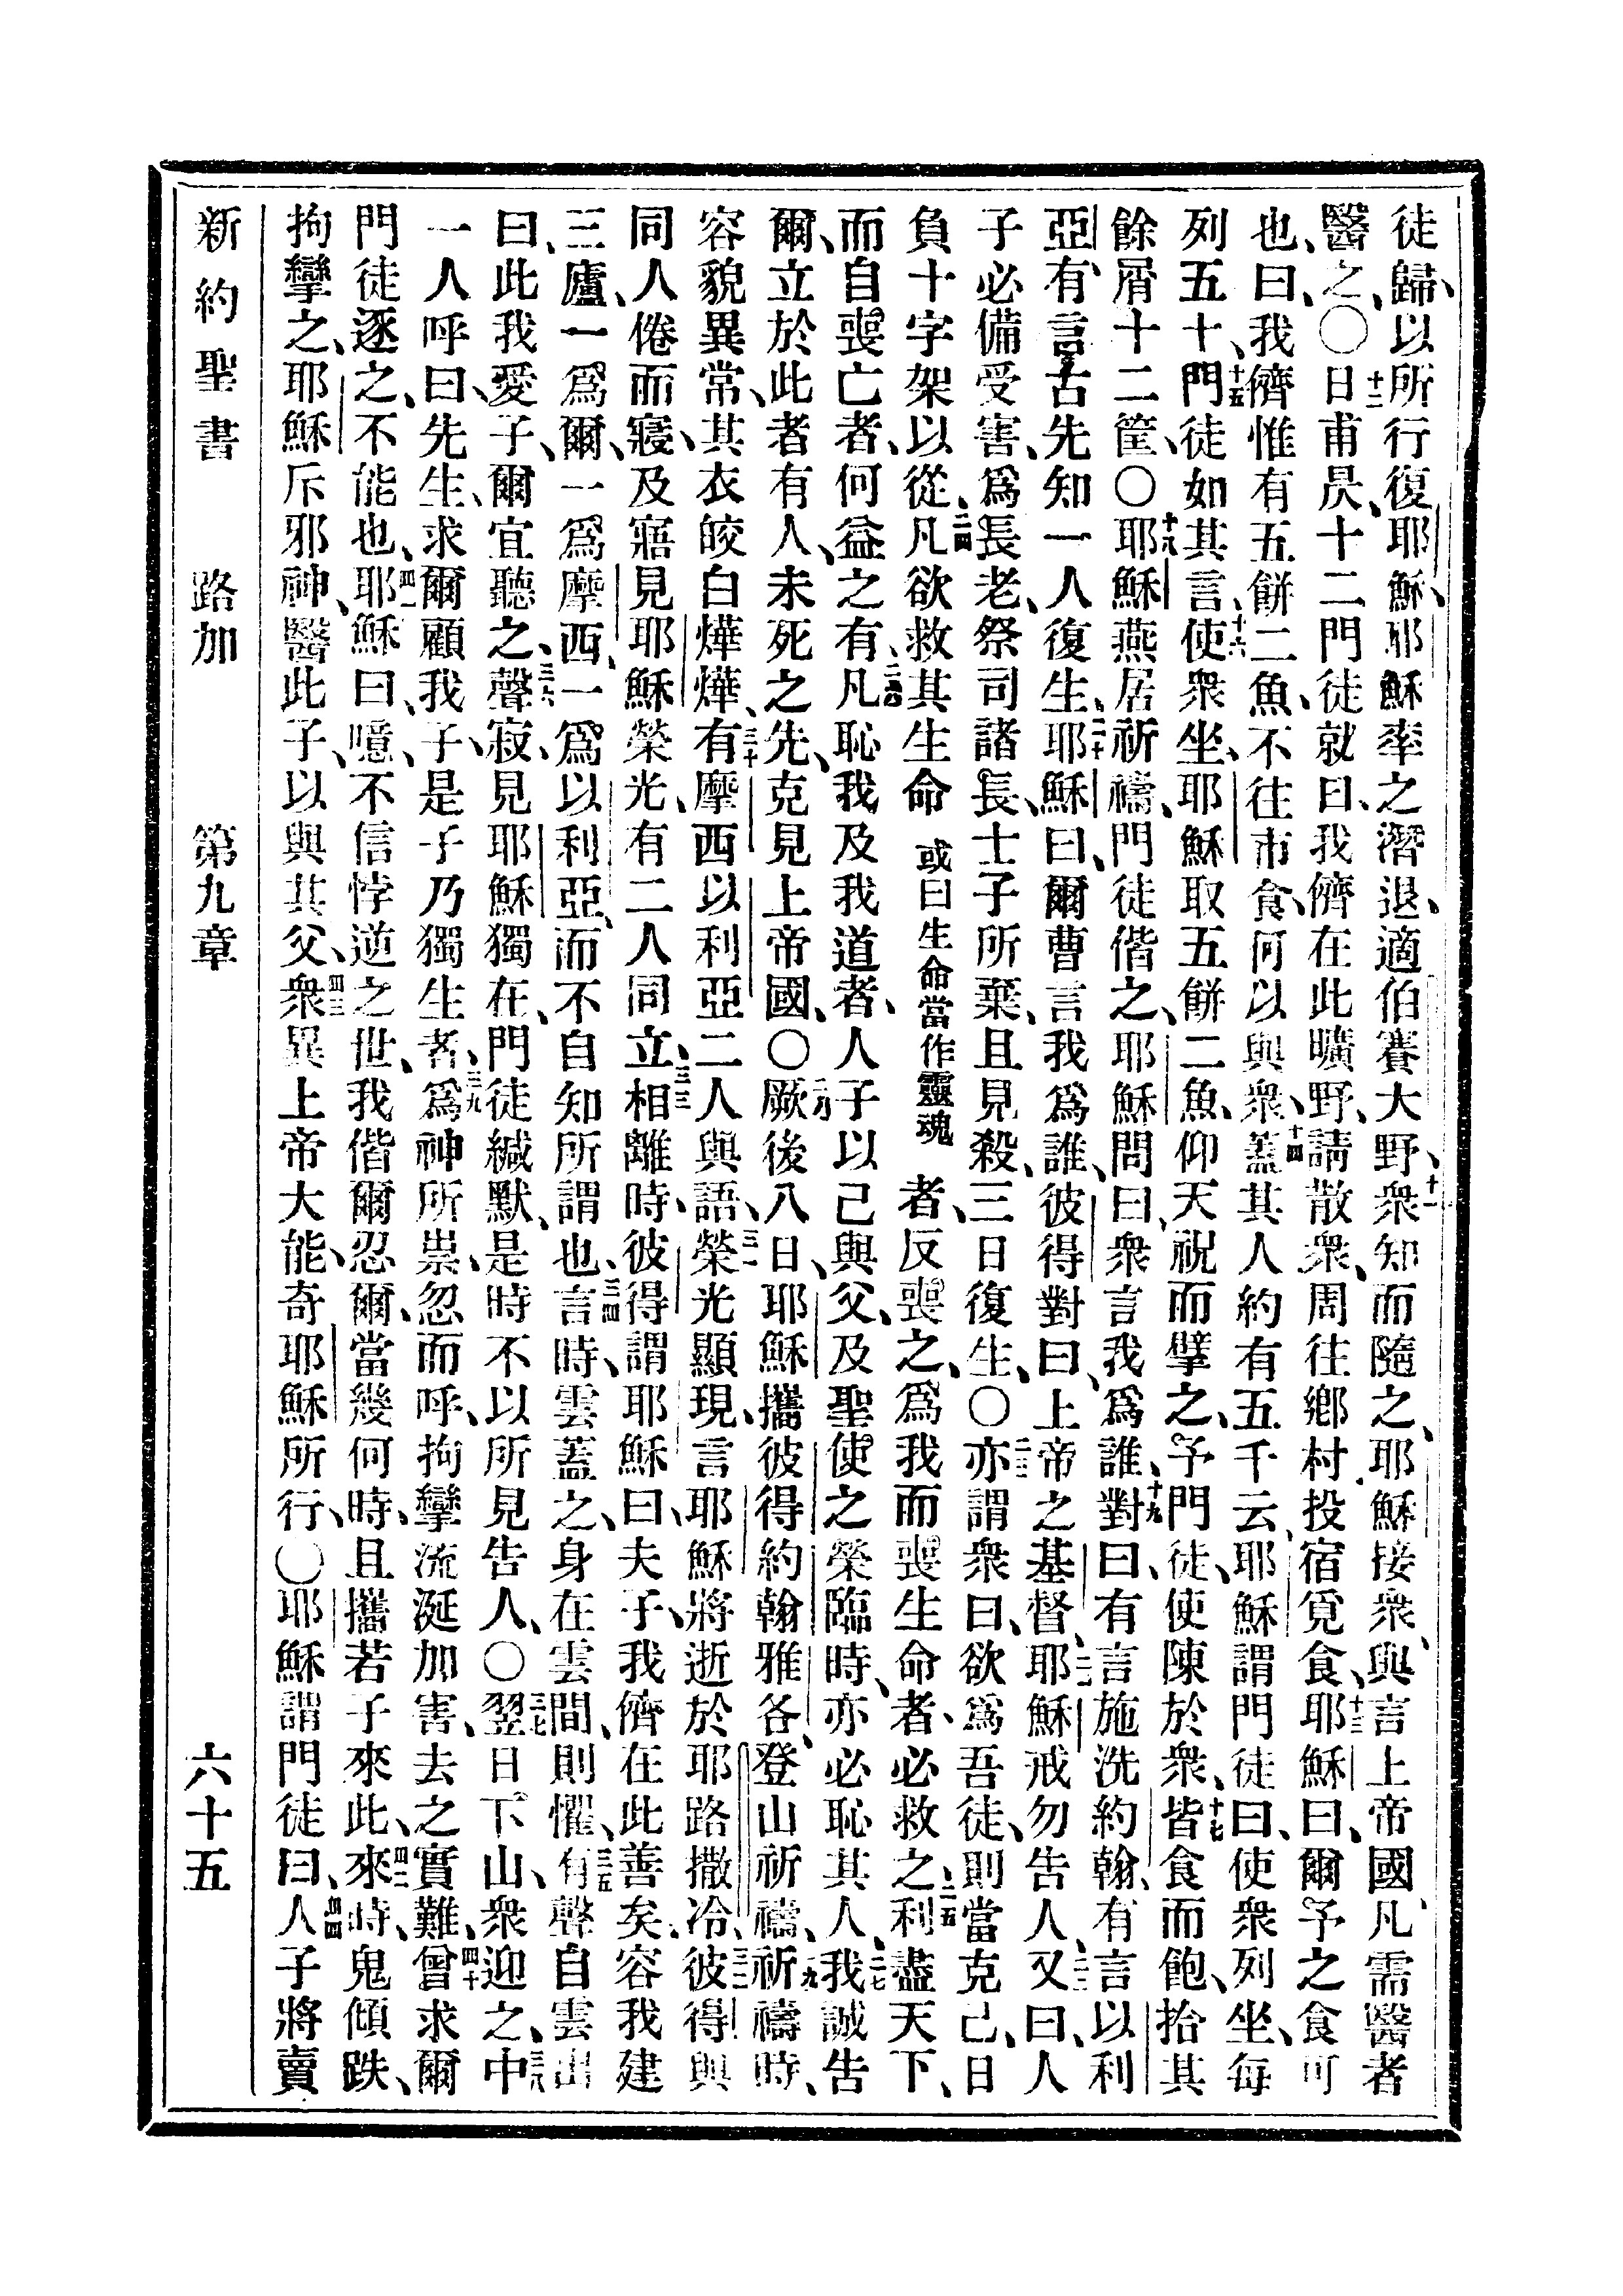 徒歸、以所行復耶穌、耶穌率之潛退、適伯賽大野、十一衆知而隨之、耶穌接衆、與言上帝國、凡需醫者
醫之、〇十二日甫昃、十二門徒就曰、我儕在此曠野、請散衆、周往鄉村、投宿覓食、十三耶穌曰、爾予之食可
也、曰、我儕惟有五餅二魚、不往市食、何以與衆、十四蓋其人約有五千云、耶穌謂門徒曰、使衆列坐、每
列五十、十五門徒如其言、十六使衆坐、耶穌取五餅二魚、仰天祝而擘之、予門徒、使陳於衆、十七皆食而飽、拾其
餘屑十二筐、〇十八耶穌燕居祈禱、門徒偕之、耶穌問曰、衆言我爲誰、十九對曰、有言施洗約翰、有言以利
亞、有言古先知一人復生、二十耶穌曰、爾曹言我爲誰、彼得對曰、上帝之基督、二一耶穌戒勿告人、二二又曰、人
子必備受害、爲長老、祭司諸長、士子所棄、且見殺、三日復生、〇二三亦謂衆曰、欲爲吾徒、則當克己、日
負十字架以從、二四凡欲救其生命或曰生命當作靈魂者、反喪之、爲我而喪生命者、必救之、二五利盡天下、
而自喪亡者、何益之有、二六凡恥我及我道者、人子以己與父、及聖使之榮臨時、亦必恥其人、二七我誠告
爾、立於此者有人、未死之先、克見上帝國、〇二八厥後八日、耶穌攜彼得約翰雅各、登山祈禱、二九祈禱時、
容貌異常、其衣皎白燁燁、三十有摩西以利亞二人與語、三一榮光顯現、言耶穌將逝於耶路撒冷、三二彼得與
同人倦而寢、及寤見耶穌榮光、有二人同立、三三相離時、彼得謂耶穌曰、夫子、我儕在此善矣、容我建
三廬、一爲爾、一爲摩西、一爲以利亞、而不自知所謂也、三四言時、雲蓋之、身在雲間、則懼、三五有聲自雲出
曰、此我愛子、爾宜聽之、三六聲寂、見耶穌獨在、門徒緘默、是時不以所見告人、〇三七翌日、下山、衆迎之、三八中
一人呼曰、先生、求爾顧我子、是子乃獨生者、三九爲神所祟、忽而呼、拘攣流涎加害、去之實難、四十曾求爾
門徒逐之、不能也、四一耶穌曰、噫、不信悖逆之世、我偕爾忍爾、當幾何時、且攜若子來此、四二來時、鬼傾跌、
拘攣之、耶穌斥邪神、醫此子、以與其父、四三衆異上帝大能、奇耶穌所行、〇耶穌謂門徒曰、四四人子將賣
新約聖書　路加　第九章　六十五